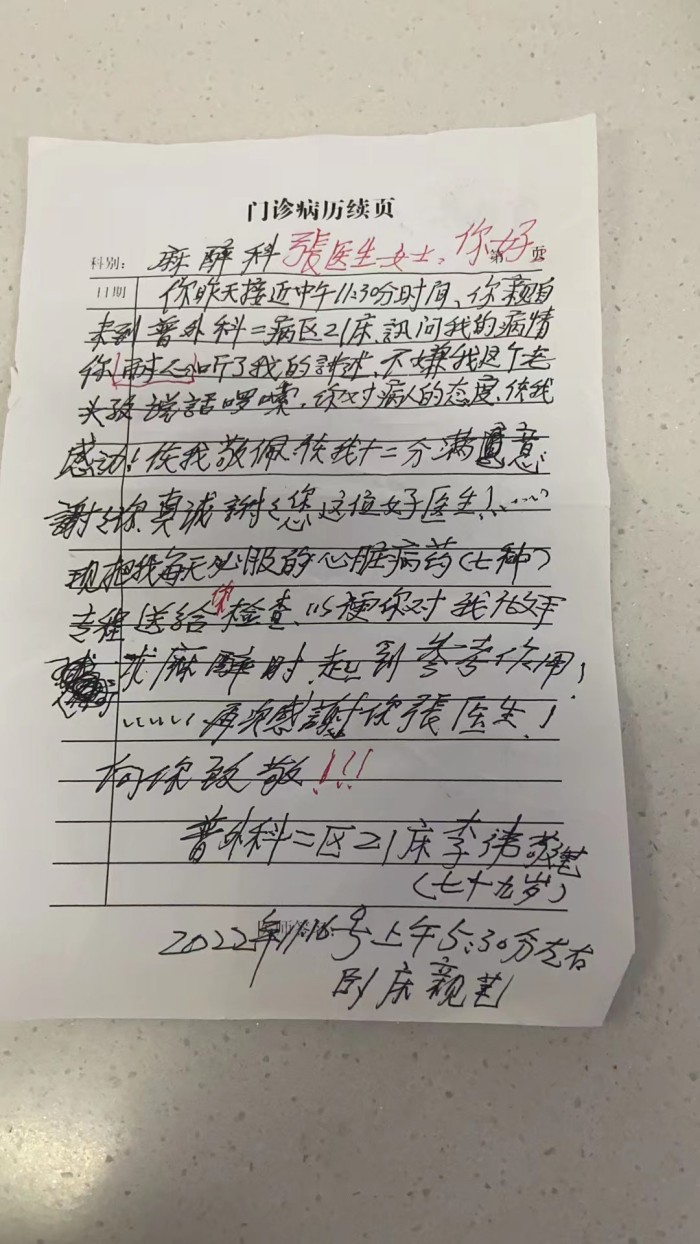 门诊病历续页
科别: 麻醉科 張医生女士,你好 第 页
日期 你昨天接近中午11:30分时间、你亲自
来到普外科二病区21床 訊问我的病情
你耐心听了我的講述、不嫌我这个老
头 說話啰嗦、你对病人的态度、使我
感动!使我敬佩、使我十二分满意
謝谢你真诚謝谢您这位好医生!……
现把我每天必服的心脏病药(七种)
专程送给你检查、以便你对我
术麻醉时起到参考作用!
……再次感謝你張医生!
向你致敬!!!
普外科二区21床李 敬笔
(七十九岁)
2022年11.16号上午5:30分左右
卧床親笔